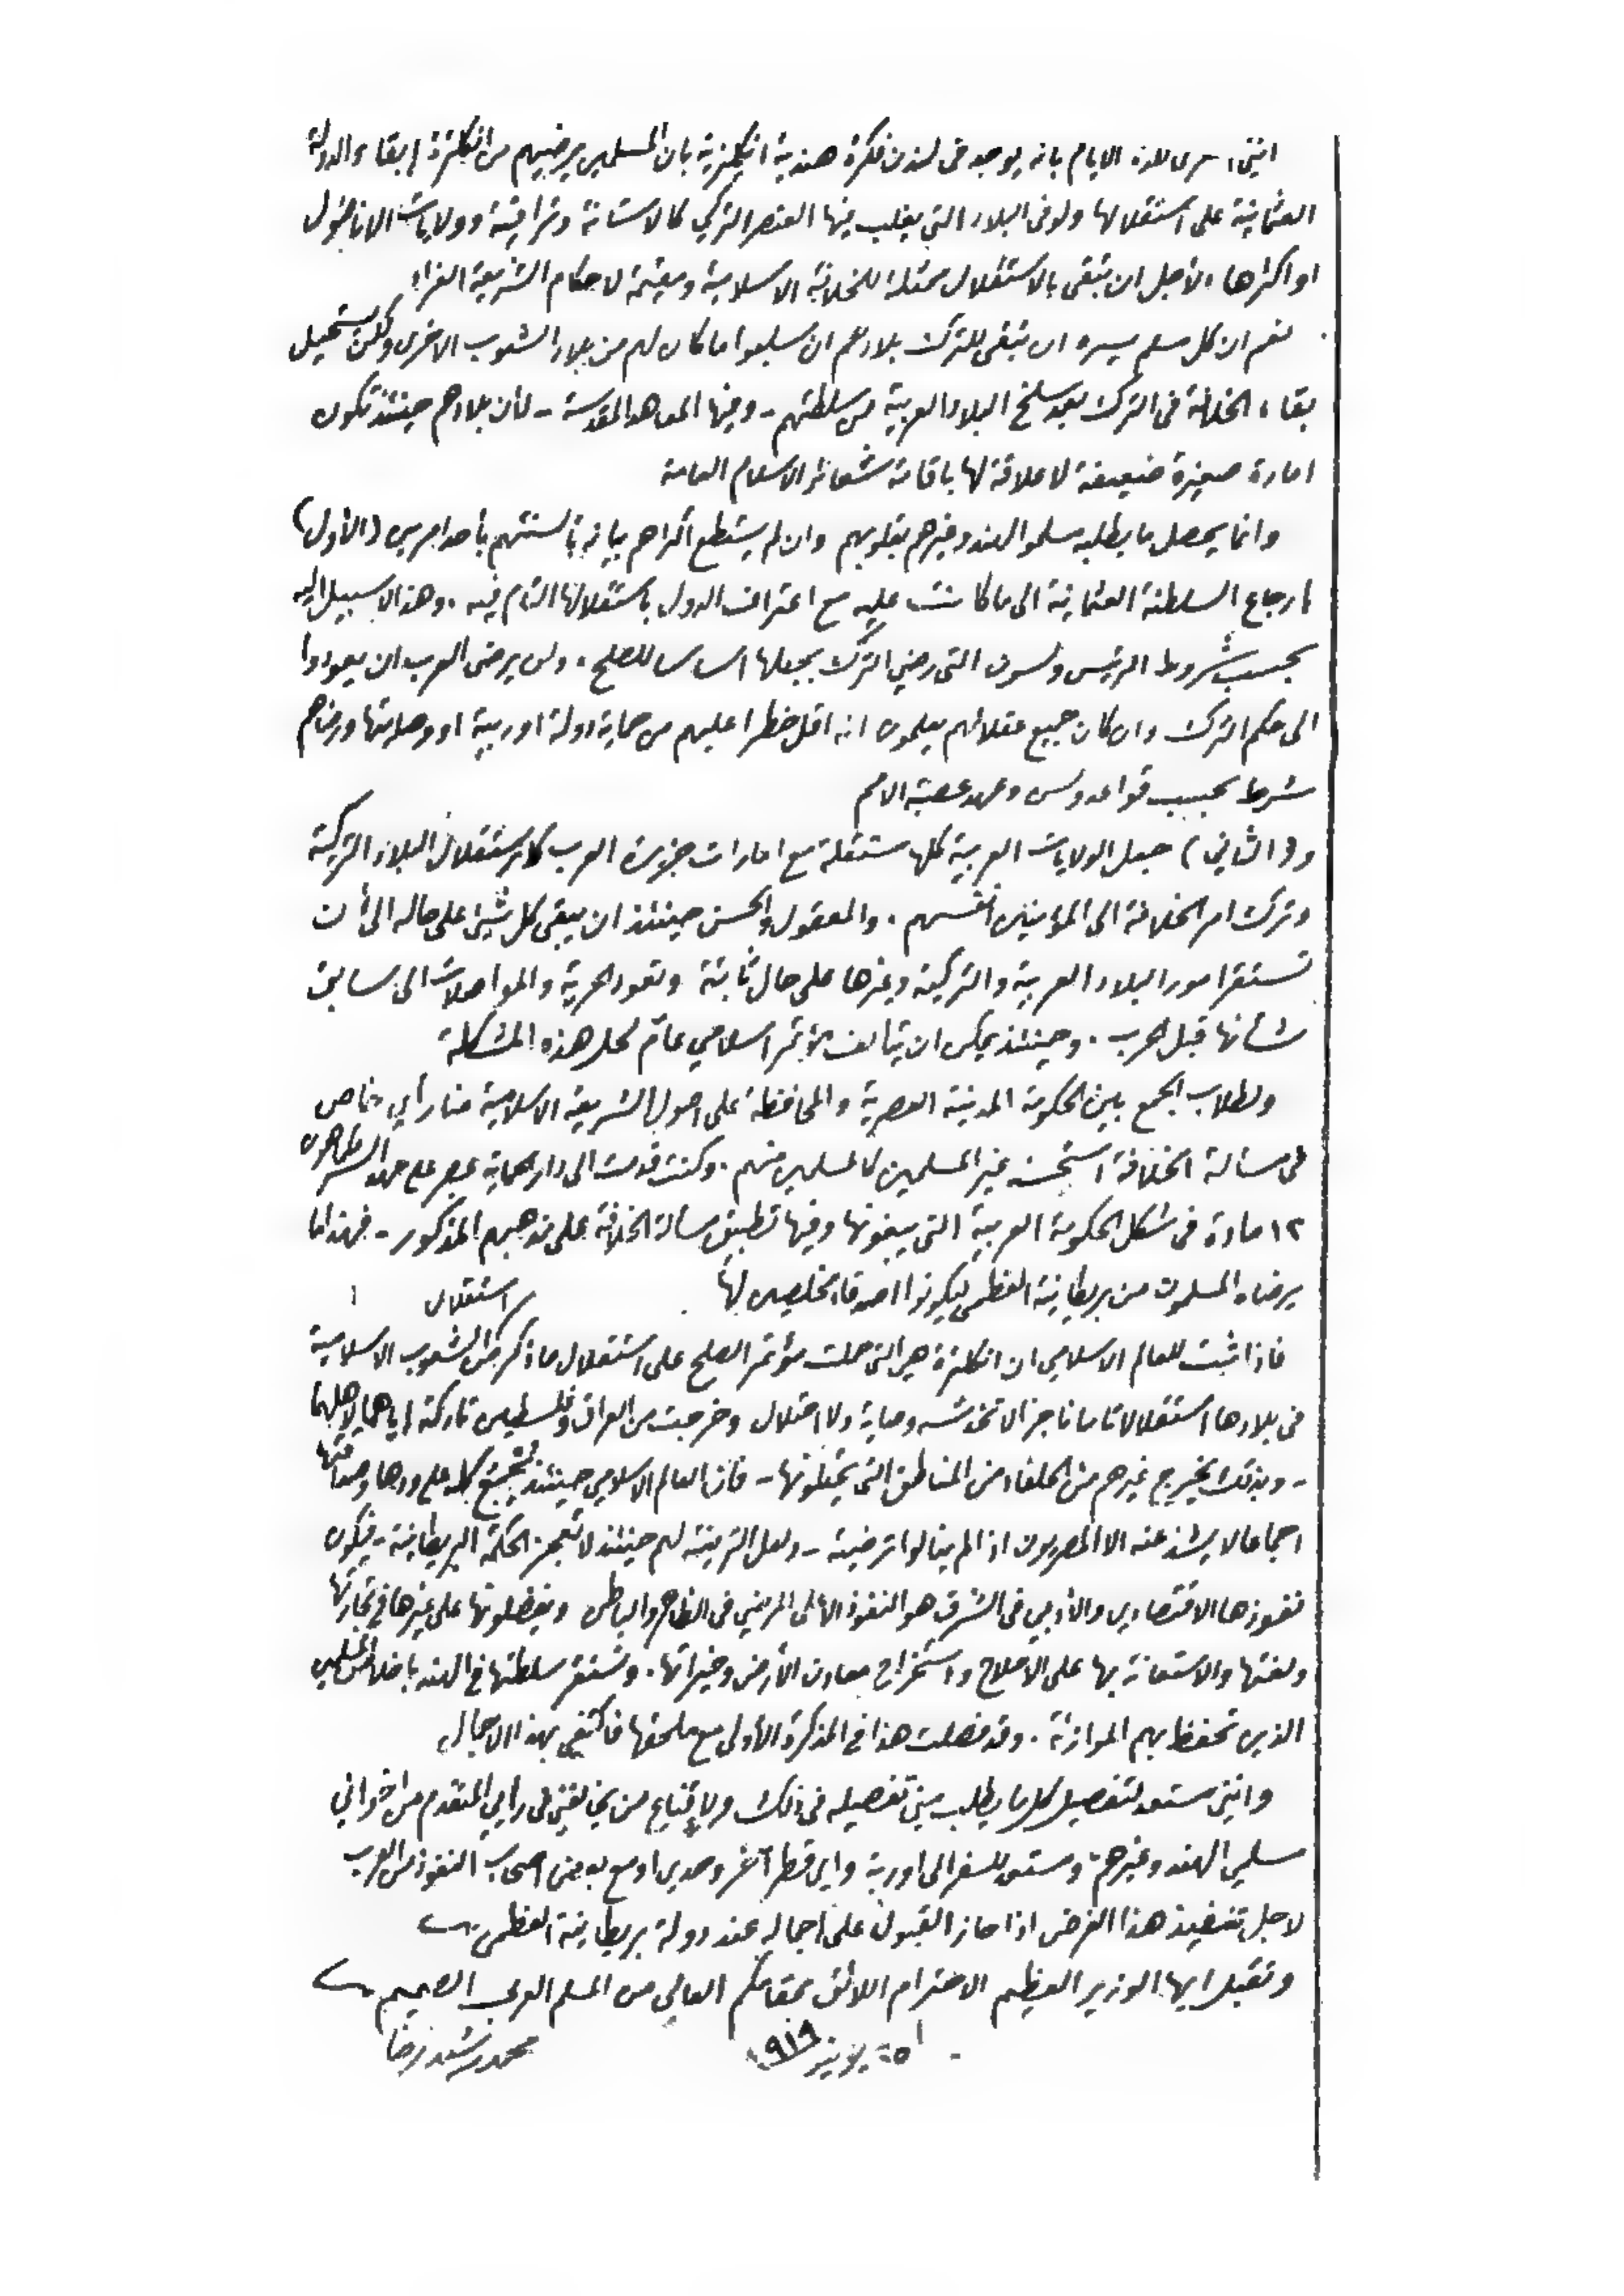 انني ارى هذه الايام بانه يوجد في لندن فكرة هندية انكليزية بان المسلمين يرضيهم من انكلترة إبقاء الدولة
العثمانية على استقلالها ولو في البلاد التي يغلب فيها العنصر التركي كالاستانة وتراقية وولايات الاناضول
او اكثرها لأجل ان تبقى بالاستقلال ممثلة للخلافة الاسلامية ومقيمة لاحكام الشريعة الغراء
نعم ان كل مسلم يسره ان تبقى للترك بلادهم ان سلبوا ما كان لهم من بلاد الشعوب الاخرى ولكن يستحيل
بقاء الخلافة في الترك بعد سلخ البلاد العربية من سلطتهم - وفيها المعاهد المقدسة - لأن بلادهم حينئذ تكون
امارة صغيرة ضعيفة لا علاقة لها باقامة شعائر الاسلام العامة
وانما يحصل ما يطلبه مسلمو الهند وغيرهم بقلوبهم وان لم يستطع اكثرهم بيانه بألسنتهم بأحد امرين (الأول)
ارجاع السلطنة العثمانية الى ما كانت عليه مع اعتراف الدول باستقلالها التام فيه . وهذا لا سبيل اليه
بحسب شروط الرئيس ولسون التي رضي الترك بجعلها اساسا للصلح . ولن يرضى العرب ان يعودوا
الى حكم الترك وان كان جميع عقلائهم يعلمون انه اقل خطرا عليهم من حماية دولة اوربية او وصايتها ورضاهم
شرط بحسب قواعد ولسن وعهد عصبة الامم
و(الثاني) جعل الولايات العربية كلها مستقلة مع امارات جزيرة العرب كاستقلال البلاد التركية
وترك امر الخلافة الى المؤمنين أنفسهم . والمعقول والحسن حينئذ ان يبقى كل شيئ على حاله الى أن
تستقر امور البلاد العربية والتركية وغيرها على حال ثابتة وتعود الحرية والمواصلات الى سابق
شأنها قبل الحرب . وحينئذ يمكن ان يتألف مؤتمر اسلامي عام لحل هذه المشكلة
ولطلاب الجمع بين الحكومة المدنية العصرية والمحافظة على اصول الشريعة الاسلامية منا رأي خاص
في مسألة الخلافة استحسنه غير المسلمين كالمسلمين منهم . وكنت قدمت الى دار الحماية بمصر على عهد السر
١٢ مادة في شكل الحكومة العربية التي يبغونها وفيها تطبيق مسألة الخلافة على مذهبهم المذكور - فهذا ما
يرضاه المسلمون من بريطانية العظمى ليكونوا اصدقاء مخلصين لها
استقلال
فاذا ثبت للعالم الاسلامي ان انكلترة هي التي حملت مؤتمر الصلح على استقلال ما ذكر من الشعوب الاسلامية
في بلادها استقلالا تاما ناجزا لا تخدشه وصاية ولا احتلال وخرجت من العراق وفلسطين تاركة إياهما لاهلهما
- وبذلك يخرج غيرهم من الحلفاء من المناطق التي يحتلونها - فان العالم الاسلامي حينئذ يجمع كله على ودها وصداقتها
اجماعا لا يشذ عنه الا المصريون اذا لم ينالوا ترضية - ولعل الترضية لهم حينئذ لا تعجز الحكمة البريطانية - فيكون
نفوذها الاقتصادي والأدبي في الشرق هو النفوذ الأعلى المرضي في الظاهر والباطن ويفضلونها على غيرها في تجارتها
ولغتها والاستعانة بها على الاصلاح واستخراج معادن الأرض وخيراتها . وتستقر سلطتها في الهند باخلاص المسلمين
الذين تحفظ بهم الموازنة . وقد فصلت هذا في المذكرة الأولى مع ملحقها فأكتفي بهذا الاجمال
وانني مستعد لتفصيل كل ما يطلب مني تفصيله في ذلك ولإقناع من يخالفني في رأيي المتقدم من اخواني
مسلمي الهند وغيرهم ومستعد للسفر الى اوربة واي قطر آخر وحدي او مع بعض اصحاب النفوذ من العرب
لاجل تنفيذ هذا الغرض اذا حاز القبول على اجماله عند دولة بريطانية العظمى
وتقبل ايها الوزير العظيم الاحترام اللائق بمقامكم العالي من المسلم العربي الصميم
يونيو ١٩١٩ محمد رشيد رضا